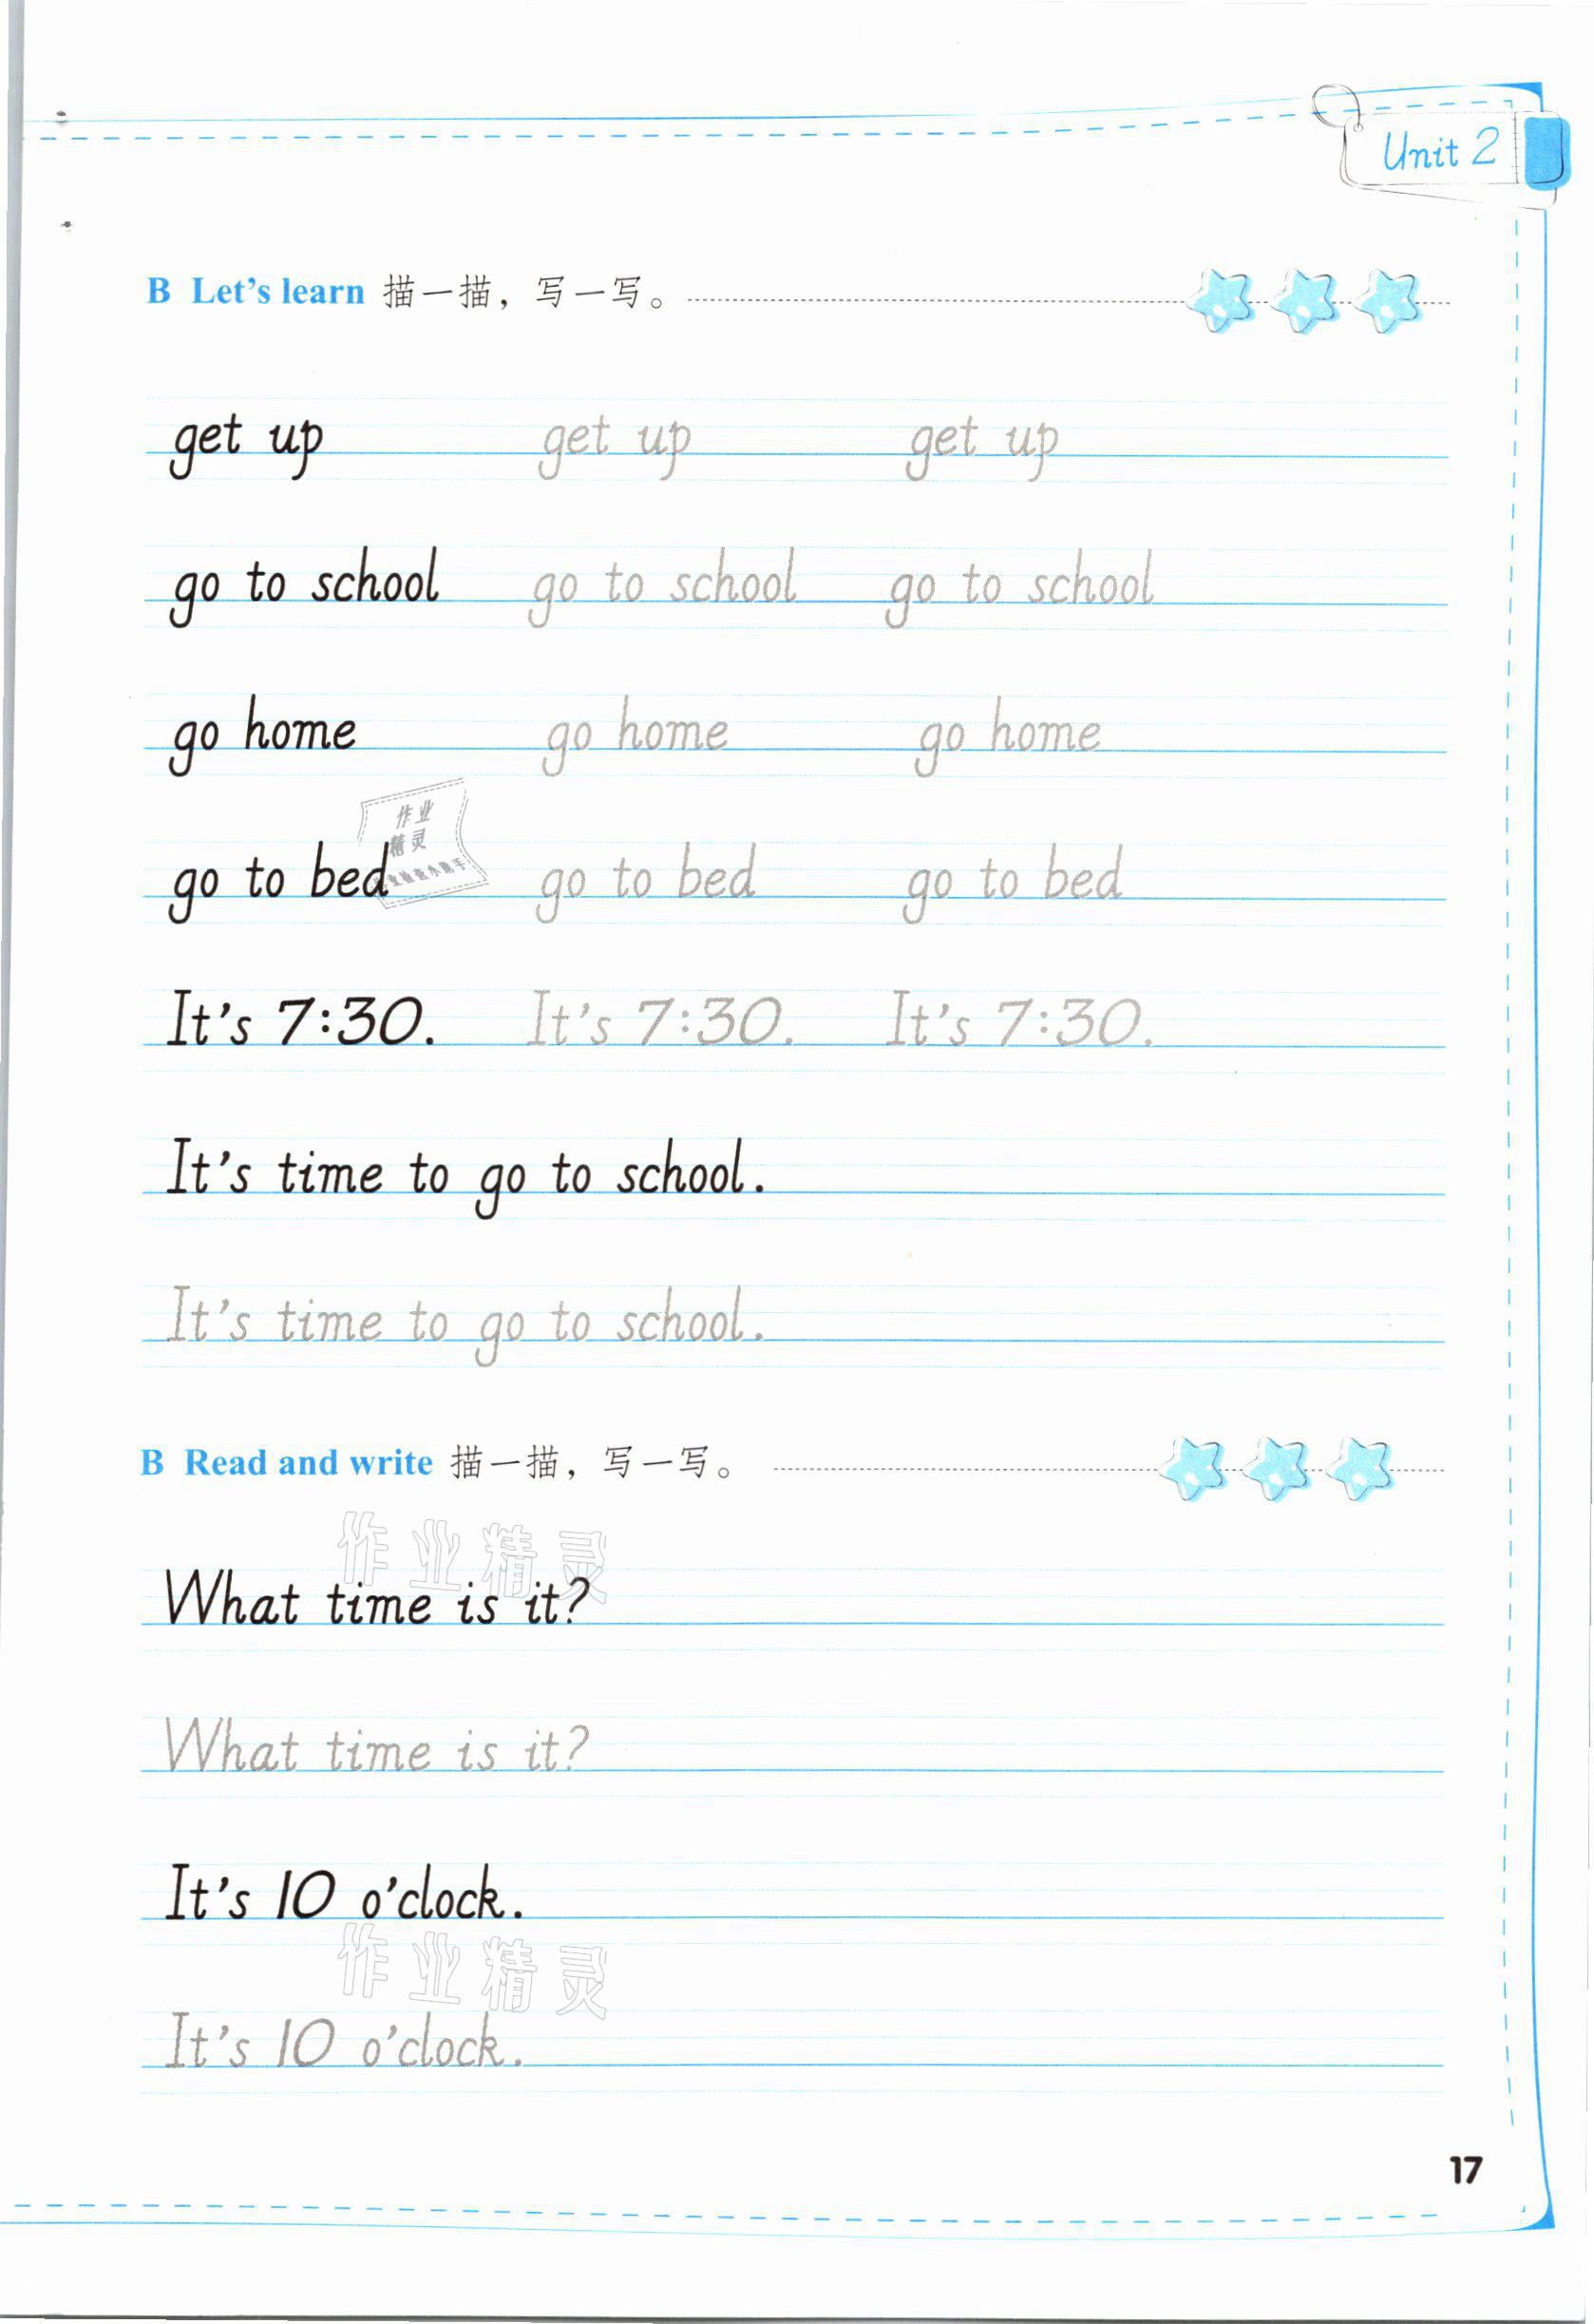 Unit 2
B Let's learn 描一描，写一写。
get up get up get up
go to school go to school go to school
go home go home go home
作业
精灵
go to bed go to bed go to bed
It's 7:30. It's 7:30. It's 7:30.
It's time to go to school.
It's time to go to school.
B Read and write 描一描，写一写。
作业精灵
What time is it?
What time is it?
It's 10 o'clock.
作业精灵
It's 10 o'clock.
17